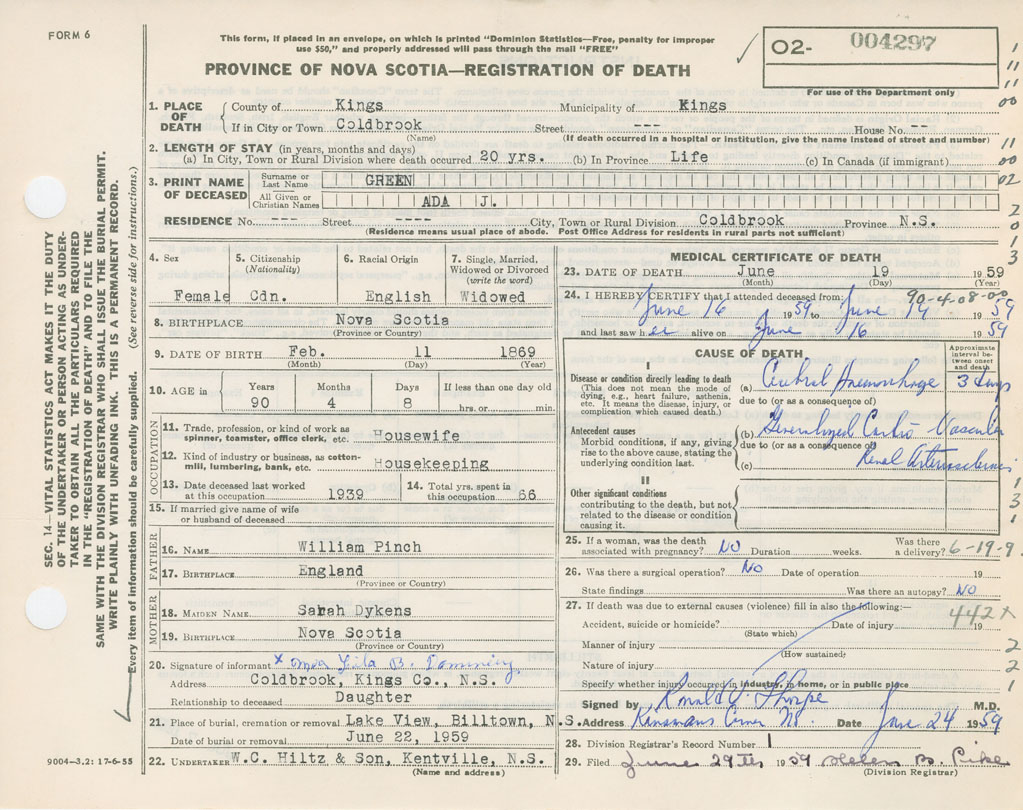 FORM 6
This form, if placed in an envelope, on which is printed "Dominion Statistics—Free, penalty for improper
use $50," and properly addressed will pass through the mail "FREE"
PROVINCE OF NOVA SCOTIA—REGISTRATION OF DEATH
O2- 004297
For use of the Department only
SEC. 14—VITAL STATISTICS ACT MAKES IT THE DUTY
OF THE UNDERTAKER OR PERSON ACTING AS UNDER-
TAKER TO OBTAIN ALL THE PARTICULARS REQUIRED
IN THE "REGISTRATION OF DEATH" AND TO FILE THE
SAME WITH THE DIVISION REGISTRAR WHO SHALL ISSUE THE BURIAL PERMIT.
WRITE PLAINLY WITH UNFADING INK. THIS IS A PERMANENT RECORD.
Every item of information should be carefully supplied. (See reverse side for instructions.)
1. PLACE OF DEATH
County of Kings Municipality of Kings
If in City or Town Coldbrook Street --- House No. --
(Name) (If death occurred in a hospital or institution, give the name instead of street and number)
2. LENGTH OF STAY (in years, months and days)
(a) In City, Town or Rural Division where death occurred 20 yrs. (b) In Province Life (c) In Canada (if immigrant)
3. PRINT NAME OF DECEASED
Surname or Last Name GREEN
All Given or Christian Names ADA J.
RESIDENCE No. --- Street ---- City, Town or Rural Division Coldbrook Province N.S.
(Residence means usual place of abode. Post Office Address for residents in rural parts not sufficient)
4. Sex
Female
5. Citizenship
(Nationality)
Cdn.
6. Racial Origin
English
7. Single, Married,
Widowed or Divorced
(write the word)
Widowed
8. BIRTHPLACE Nova Scotia
(Province or Country)
9. DATE OF BIRTH Feb. 11 1869
(Month) (Day) (Year)
10. AGE in
Years Months Days If less than one day old
90 4 8 hrs. or min.
OCCUPATION
11. Trade, profession, or kind of work as
spinner, teamster, office clerk, etc. Housewife
12. Kind of industry or business, as cotton-
mill, lumbering, bank, etc. Housekeeping
13. Date deceased last worked
at this occupation 1939
14. Total yrs. spent in
this occupation 66
15. If married give name of wife
or husband of deceased
FATHER
16. NAME William Pinch
17. BIRTHPLACE England
(Province or Country)
MOTHER
18. MAIDEN NAME Sarah Dykens
19. BIRTHPLACE Nova Scotia
(Province or Country)
20. Signature of informant x Lila B.
Address Coldbrook, Kings Co., N.S.
Relationship to deceased Daughter
21. Place of burial, cremation or removal Lake View, Billtown, N.S.
Date of burial or removal June 22, 1959
22. UNDERTAKER W.C. Hiltz & Son, Kentville, N.S.
(Name and address)
9004—3.2: 17-6-55
MEDICAL CERTIFICATE OF DEATH
23. DATE OF DEATH June 19 1959
(Month) (Day) (Year)
90-4-08-00
24. I HEREBY CERTIFY that I attended deceased from:
June 16 1959 to June 19 1959
and last saw her alive on June 16 1959
CAUSE OF DEATH
Approximate
interval be-
tween onset
and death
I
Disease or condition directly leading to death
(This does not mean the mode of
dying, e.g., heart failure, asthenia,
etc. It means the disease, injury, or
complication which caused death.)
(a) Cerebral Haemorrhage 3 days
due to (or as a consequence of)
Antecedent causes
Morbid conditions, if any, giving
rise to the above cause, stating the
underlying condition last.
(b) Generalized Cardio Vascular
due to (or as a consequence of)
(c) Renal Arteriosclerosis
II
Other significant conditions
contributing to the death, but not
related to the disease or condition
causing it.
25. If a woman, was the death
associated with pregnancy? NO Duration weeks. Was there
a delivery? 6-19-9
26. Was there a surgical operation? NO Date of operation 19
State findings Was there an autopsy? NO
27. If death was due to external causes (violence) fill in also the following:—
442
Accident, suicide or homicide? Date of injury 19
(State which)
Manner of injury
(How sustained)
Nature of injury
Specify whether injury occurred in industry, in home, or in public place
Signed by Ronald Thorpe M.D.
Address Date June 24 1959
28. Division Registrar's Record Number 1
29. Filed June 29th 1959 Helen B. Pike
(Division Registrar)
1
11
11
00
11
00
02
2
0
1
3
1
3
1
2
2
1